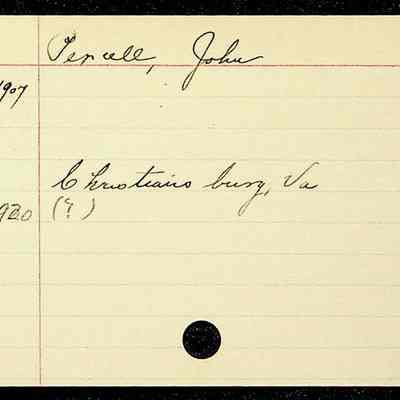 Percell, John
1907
Christians burg, Va
920 (?)